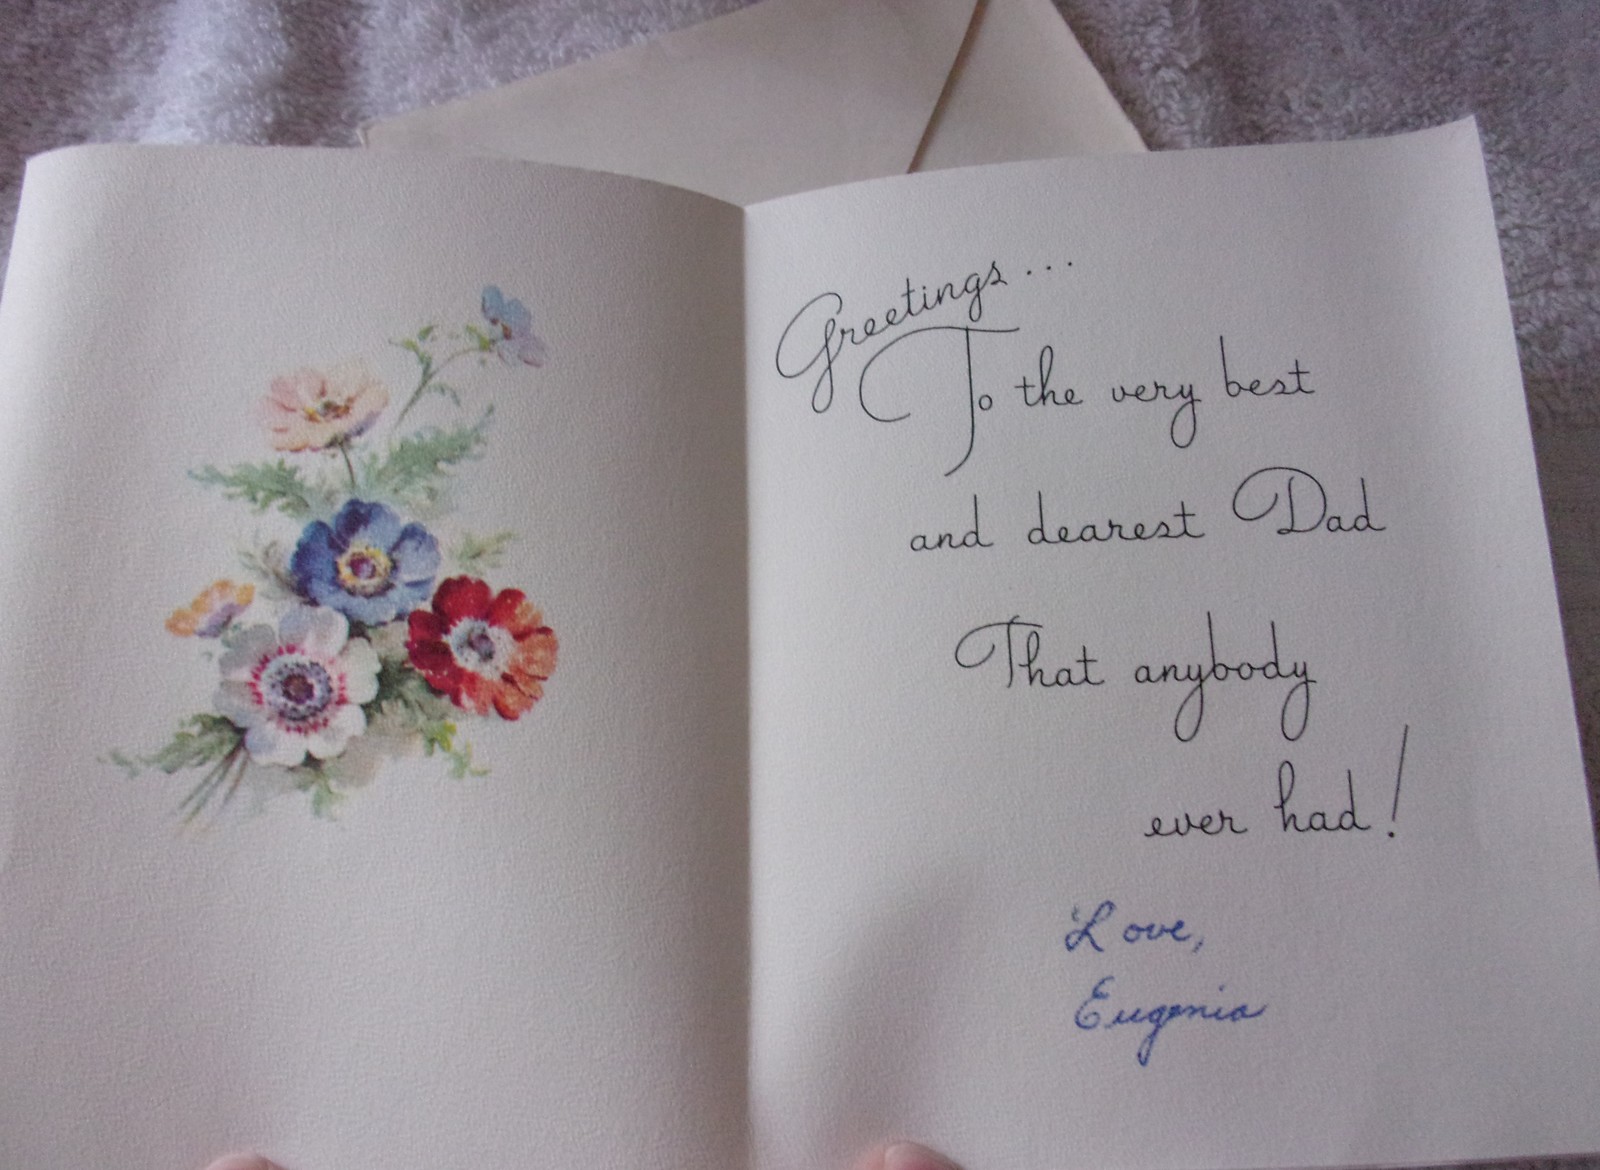 Greetings...
To the very best
and dearest Dad
That anybody
ever had!
Love,
Eugenia